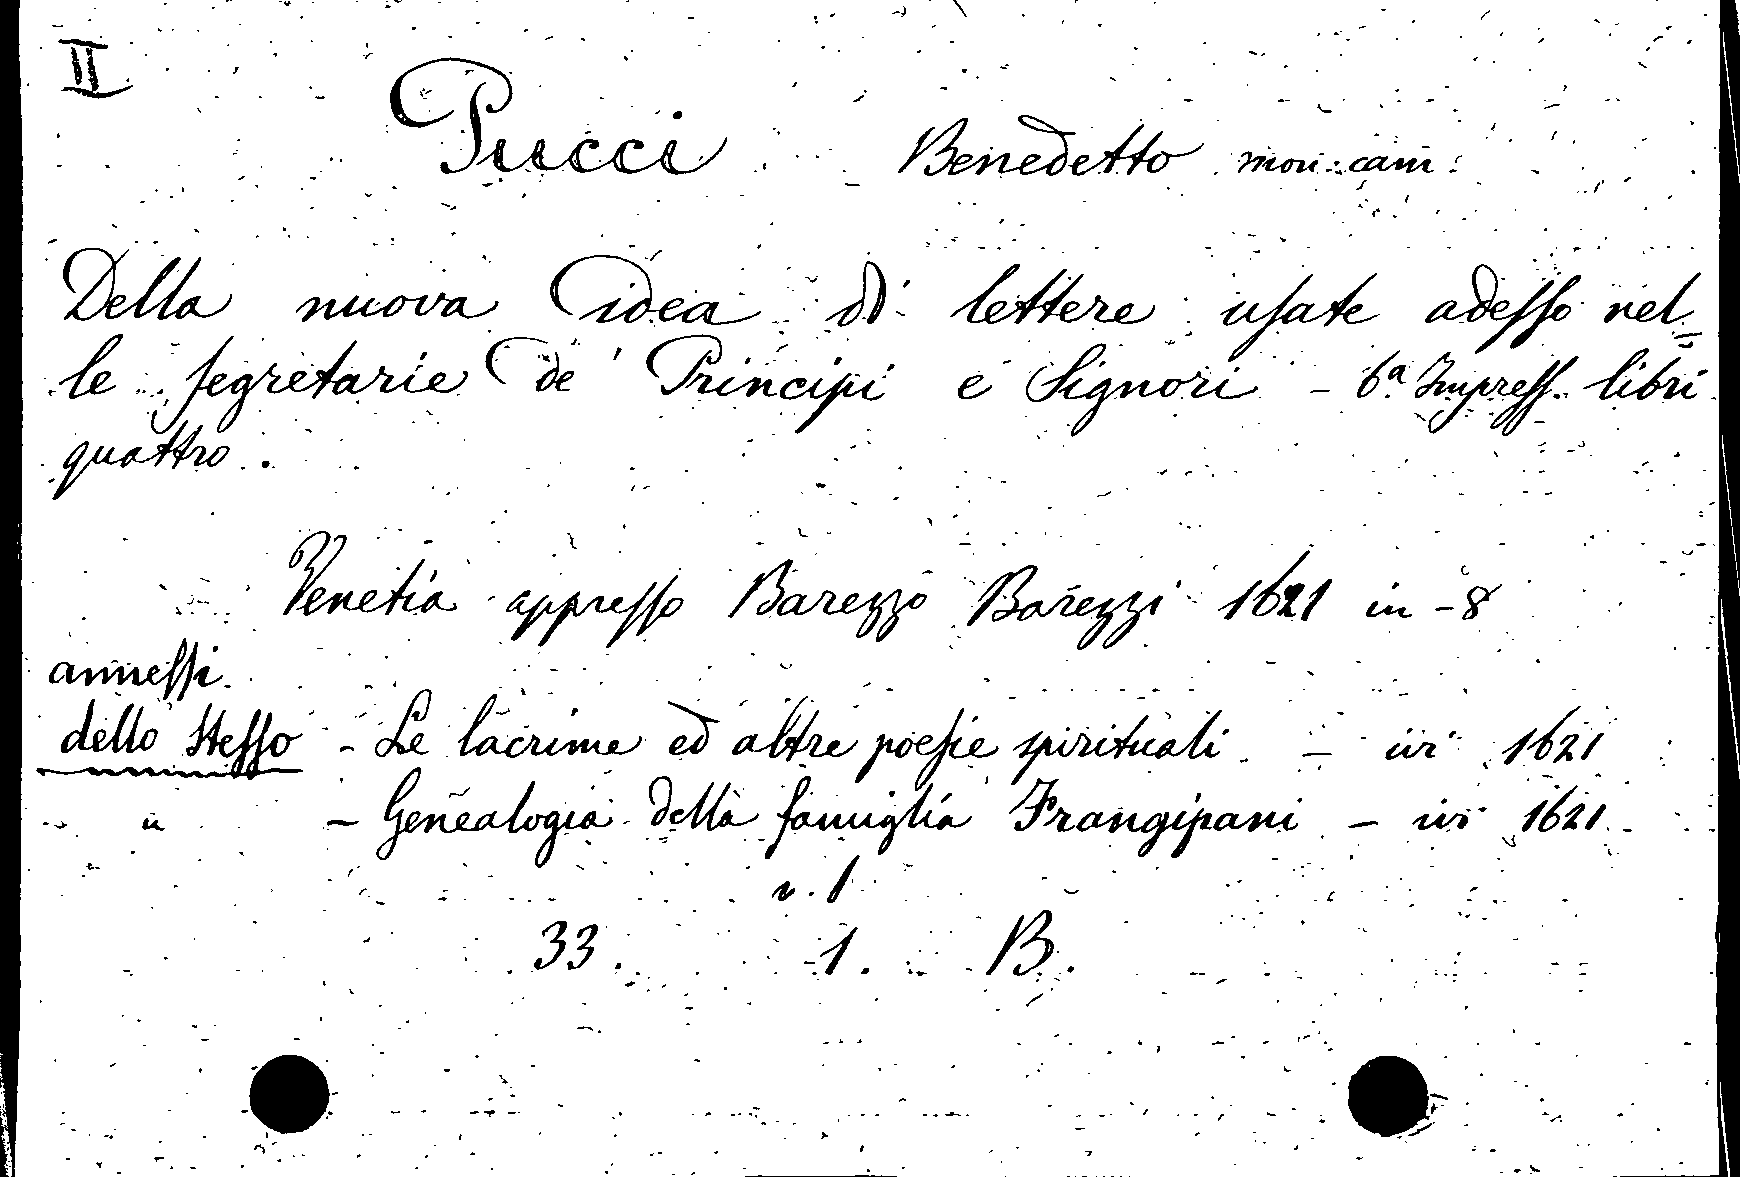 II
Pucci Benedetto mon: cam:
Della nuova idea di lettere usate adesso nel=
le segretarie de' Principi e Signori - 6ª Impress. libri
quattro.
Venetia appresso Barezzo Barezzi 1621 in-8
annessi
dello stesso - Le lacrime ed altre poesie spirituali - ivi 1621
" " - Genealogia della famiglia Frangipani - ivi 1621
v. 1
33. 1. B.